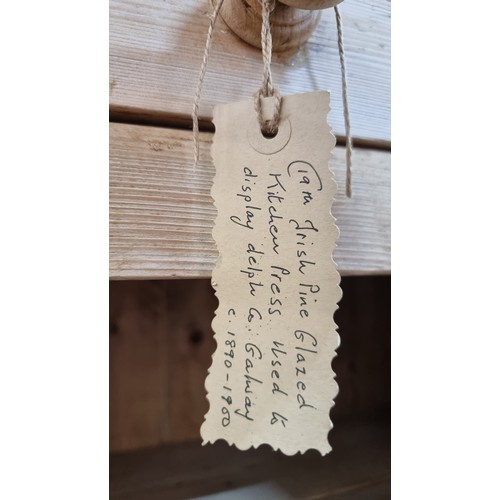 C19th Irish Pine Glazed
Kitchen Press. Used to
display delph Co: Galway
c. 1890-1900